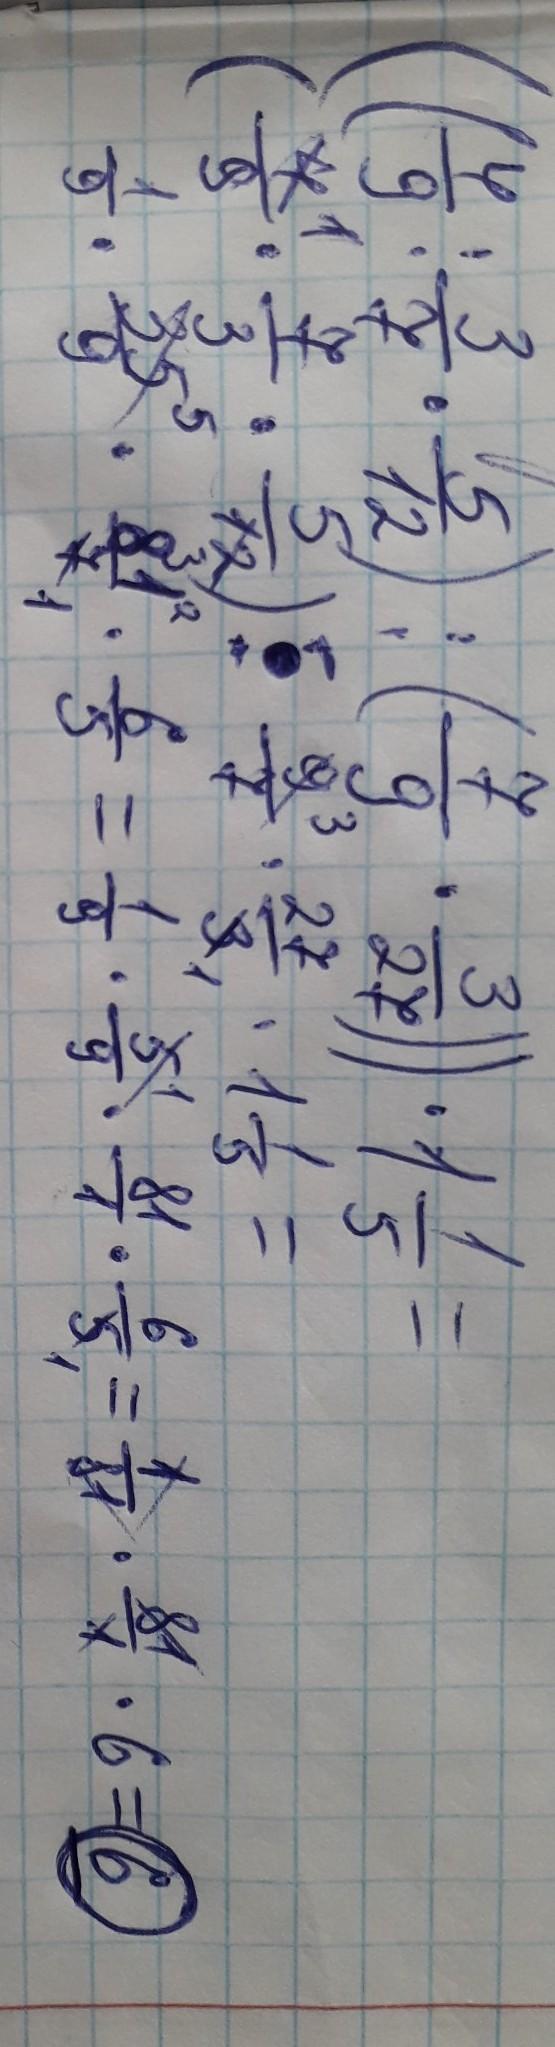 ((4/9 : 3/7 · 5/12) : (7/9 · 3/27)) · 1 1/5 =
(4/9 · 7/3 · 5/12) · 9/7 · 27/3 · 1 1/5 =
1/9 · 35/9 · 81/7 · 6/5 = 1/9 · 5/9 · 81/1 · 6/5 = 1/81 · 81/1 · 6 = 6